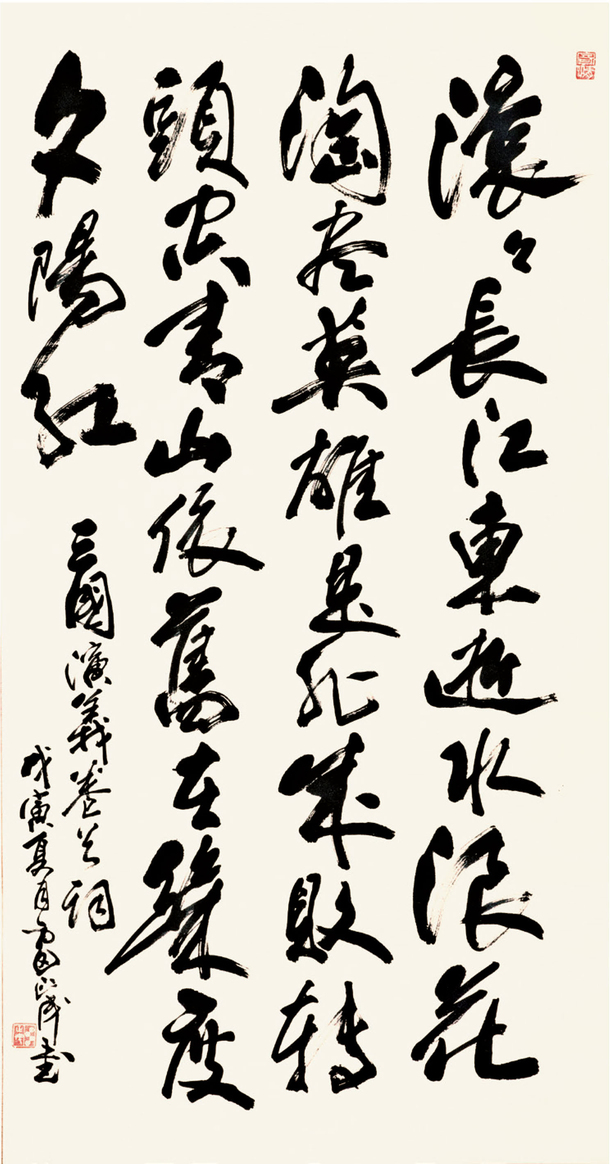 滚々長江東逝水浪花
淘尽英雄是非成敗轉
頭空青山依舊在幾度
夕陽紅
三國演義卷首詞
戊寅夏月
書